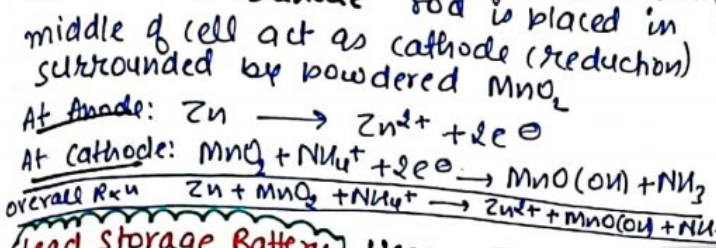 rod is placed in
middle of cell act as cathode (reduction)
surrounded by powdered MnO₂
At Anode: Zn ⟶ Zn²⁺ + 2e⊖
At Cathode: MnO₂ + NH₄⁺ + 2e⊖ → MnO(OH) + NH₃
overall Rxn Zn + MnO₂ + NH₄⁺ ⟶ Zn²⁺ + MnO(OH + NH
Lead Storage Battery